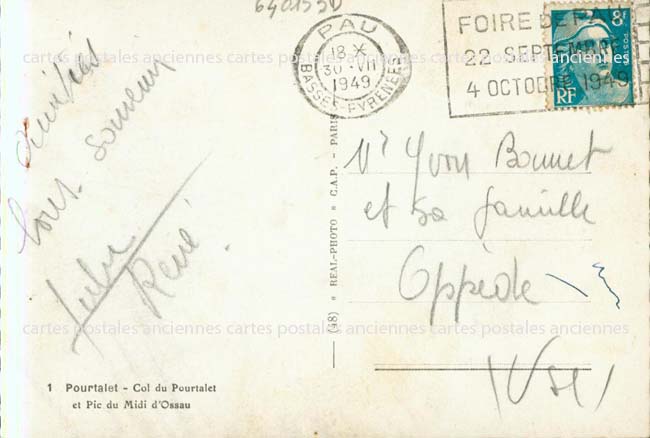 640155D
PAU
18 X
30 · VII
1949
BASSES-PYRENEES
FOIRE DE PAU
22 SEPTEMBRE
4 OCTOBRE 1949
8F
POSTES
RF
Amitiés
souvenir
tous
René
Mr Yvon Bonnet
et sa famille
Oppède
(Vse)
(48) * REAL-PHOTO * C.A.P. - PARIS
cartes postales anciennes cartes postales anciennes cartes postales anciennes
cartes postales anciennes cartes postales anciennes cartes postales anciennes
1 Pourtalet - Col du Pourtalet
et Pic du Midi d'Ossau